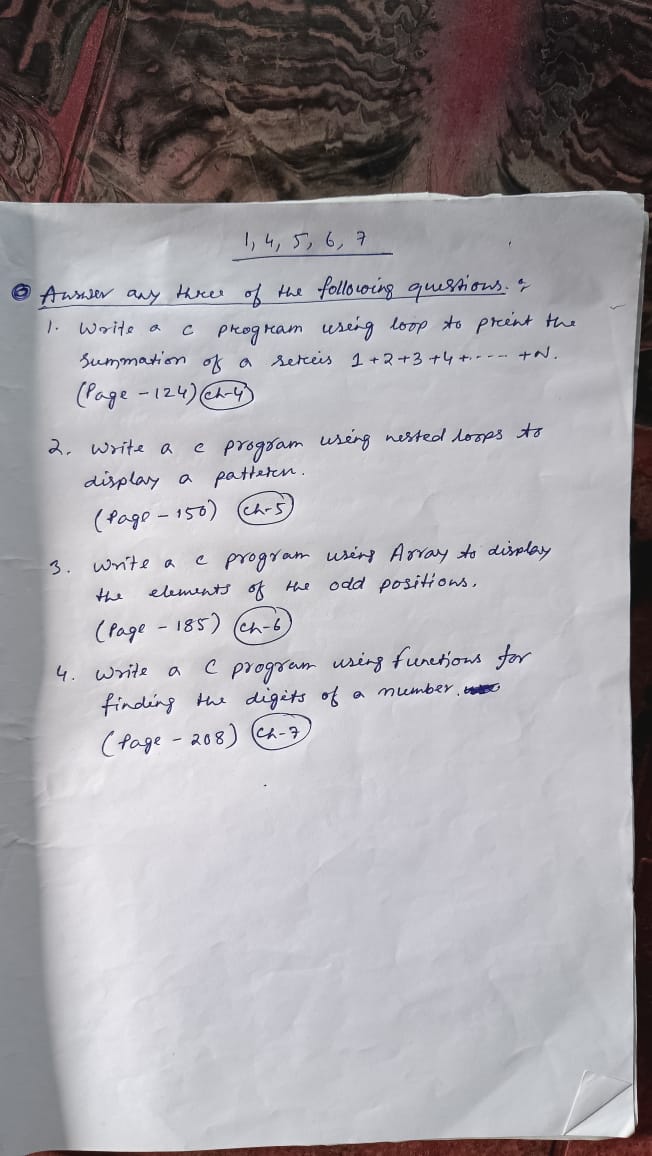 1, 4, 5, 6, 7
Answer any three of the following questions.
1. Write a c program using loop to print the
summation of a sereis 1+2+3+4+----- +N.
(Page - 124) ch-4
2. Write a c program using nested loops to
display a pattern.
(Page - 150) ch-5
3. Write a c program using Array to display
the elements of the odd positions.
(Page - 185) ch-6
4. Write a C program using functions for
finding the digits of a number.
(Page - 208) ch-7